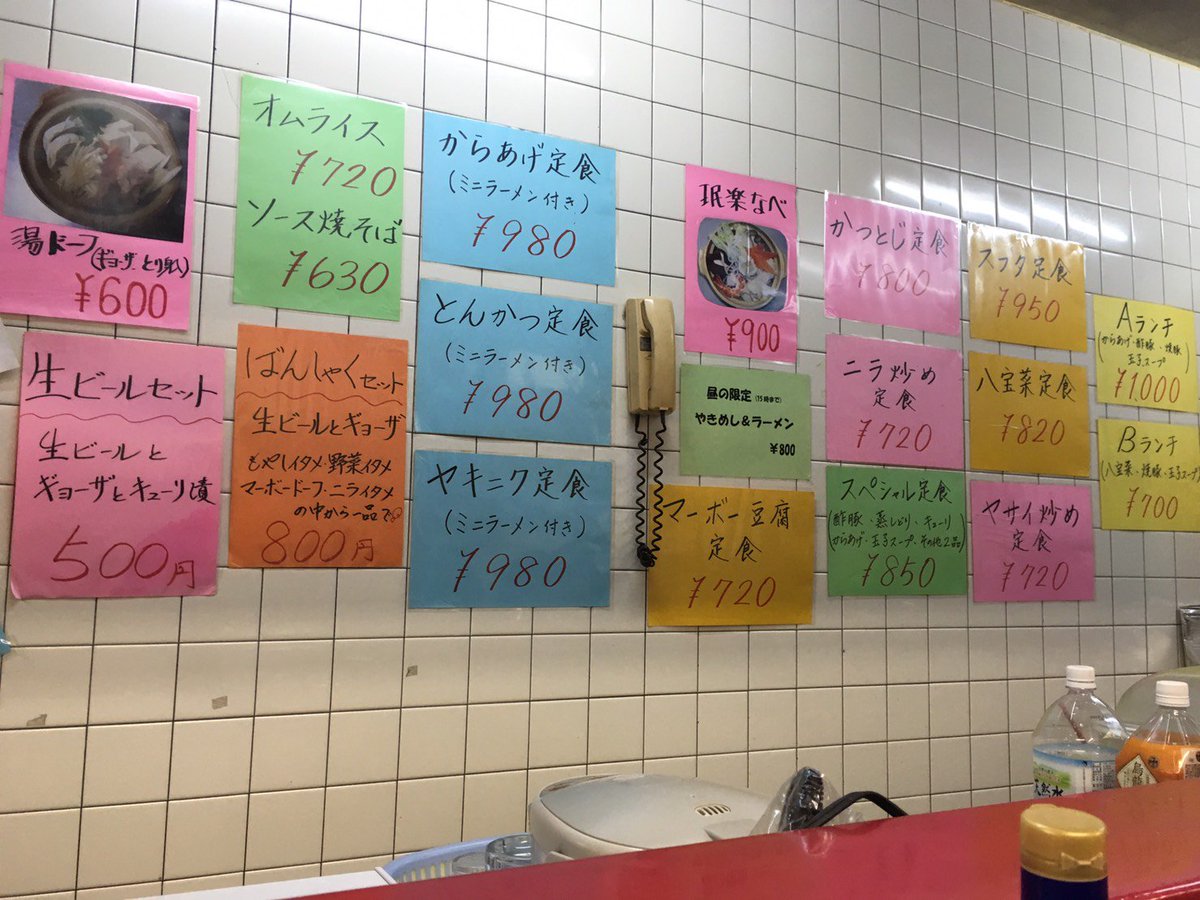 湯ドーフ(ギョーザ、とり身入)
¥600
オムライス
¥720
ソース焼そば
¥630
からあげ定食
(ミニラーメン付き)
¥980
珉楽なべ
¥900
かつとじ定食
¥800
スブタ定食
¥950
Aランチ
(からあげ・酢豚・焼豚
玉子スープ)
¥1,000
生ビールセット
生ビールと
ギョーザとキューリ漬
500円
ばんしゃくセット
生ビールとギョーザ
もやしイタメ・野菜イタメ
マーボードーフ・ニライタメ
の中から一品で
800円
とんかつ定食
(ミニラーメン付き)
¥980
昼の限定(15時まで)
やきめし&ラーメン
¥800
ニラ炒め
定食
¥720
八宝菜定食
¥820
Bランチ
(八宝菜、焼豚、玉子スープ)
¥700
ヤキニク定食
(ミニラーメン付き)
¥980
マーボー豆腐
定食
¥720
スペシャル定食
(酢豚、蒸しどり、キューリ
からあげ、玉子スープ、その他2品)
¥850
ヤサイ炒め
定食
¥720
天然水
烏龍